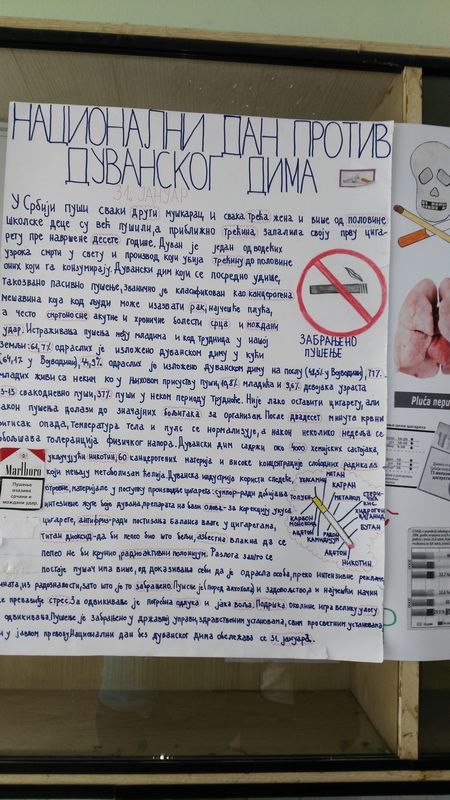 НАЦИОНАЛНИ ДАН ПРОТИВ
ДУВАНСКОГ ДИМА
31. ЈАНУАР
У Србији пуши сваки други мушкарац и свака трећа жена и више од половине
школске деце су већ пушили, а приближно трећина запалила своју прву цига-
рету пре навршене десете године. Дуван је један од водећих
узрока смрти у свету и производ који убија трећину до половине
оних који га конзумирају. Дувански дим који се посредно удише,
такозвано пасивно пушење, званично је класификован као канцерогена
мешавина која код људи може изазвати рак, најчешће плућа,
а често смртоносне акутне и хроничне болести срца и мождани
удар. Истраживања пушења међу младима и код трудница у нашој
земљи: 64,7% одраслих је изложено дуванском диму у кући
(64,4% у Војводини), 44,9% одраслих је изложено дуванском диму на послу
младих живи са неким ко у њиховом присуству пуши, 10,8% младића и 9,6% девојака узраста
13-15 свакодневно пуши, 37% пуши у неком периоду трудноће. Није лако оставити цигарету, али
након пушења долази до значајних бољитака за организам. После двадесет минута крвни
притисак опада, температура тела и пулс се нормализује, а након неколико недеља се
побољшава толеранција физичког напора. Дувански дим садржи око 4000 хемијских састојака,
укључујући никотин, 60 канцерогених материја и високе концентрације слободних радикала
који мењају метаболизам ћелија. Дуванска индустрија користи следеће, хемијски
отровне, материјале у поступку производње цигарета: сумпор-ради добијања
интензивне жуте боје дувана, препарати на бази олова- за корекцију укуса
цигарете, антифриз-ради постизања баланса влаге у цигаретама,
титан диоксид-да би пепео био што бељи, азбестна влакна да се
пепео не би крунио, радиоактивни полонијум. Разлога зашто се
постаје пушач има више, од доказивања себи да је одрасла особа, преко интензивне рекламе
из радозналости, зато што је то забрањено. Пуши се и (поред алкохола) из задовољства и најчешћи начин
се превазиђе стрес. За одвикавање је потребна одлука и јака воља. Подршка околине игра велику улогу
одвикавања. Пушење је забрањено у државној управи, здравственим установама, свим просветним установама
и у јавном превозу. Национални дан без дуванског дима обележава се 31. јануара.
ЗАБРАЊЕНО
ПУШЕЊЕ
Marlboro
Пушење
изазива
срчани и
мождани
удар.
МЕТАН
КАТРАН
МЕТАНОЛ
БУТАН
АЦЕТОН
НИКОТИН
Pluća